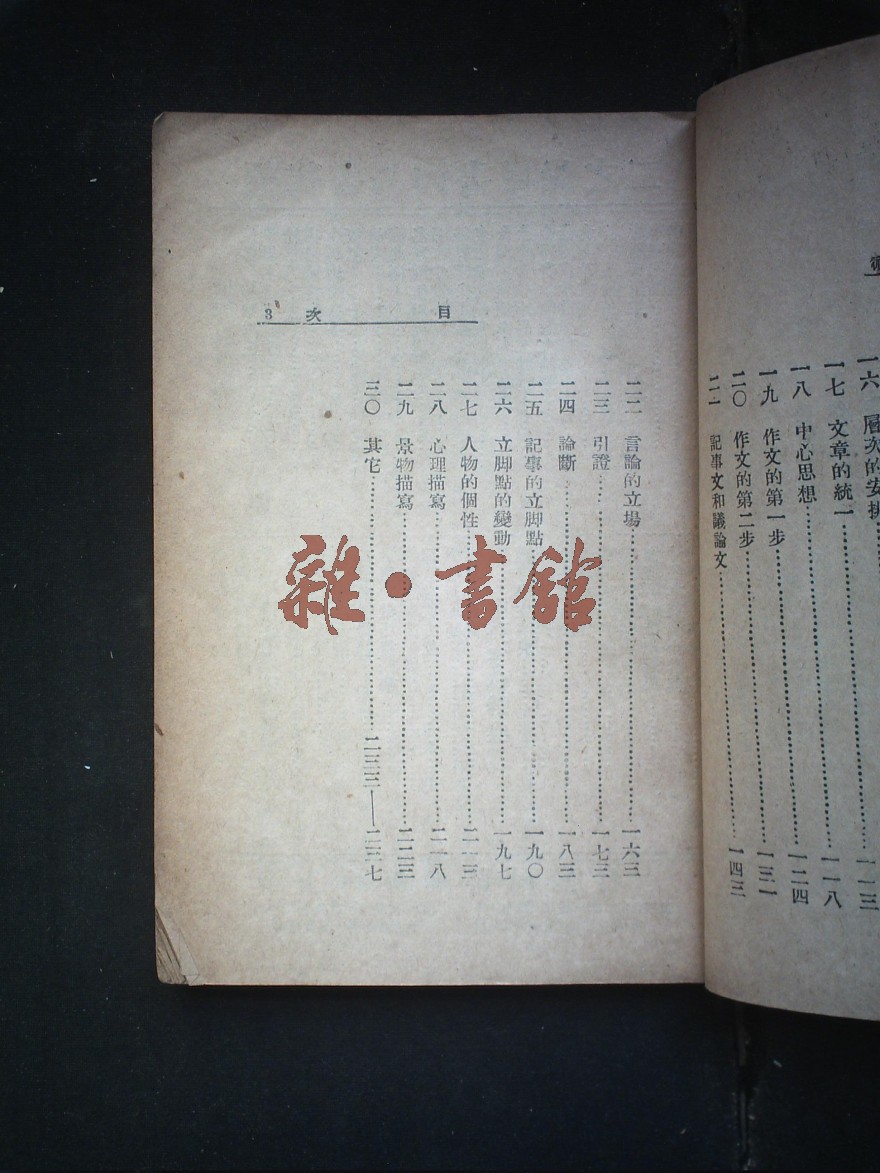 一六 層次的安排……
一七 文章的統一……一一三
一八 中心思想……一一八
一九 作文的第一步……一二四
二〇 作文的第二步……一三一
二一 記事文和議論文……一四三
目次 3
二二 言論的立場……一六三
二三 引證……一七三
二四 論斷……一八三
二五 記事的立脚點……一九〇
二六 立脚點的變動……一九七
二七 人物的個性……二一三
二八 心理描寫……二一八
二九 景物描寫……二二三
三〇 其它……二三三——二三七
雜·書館